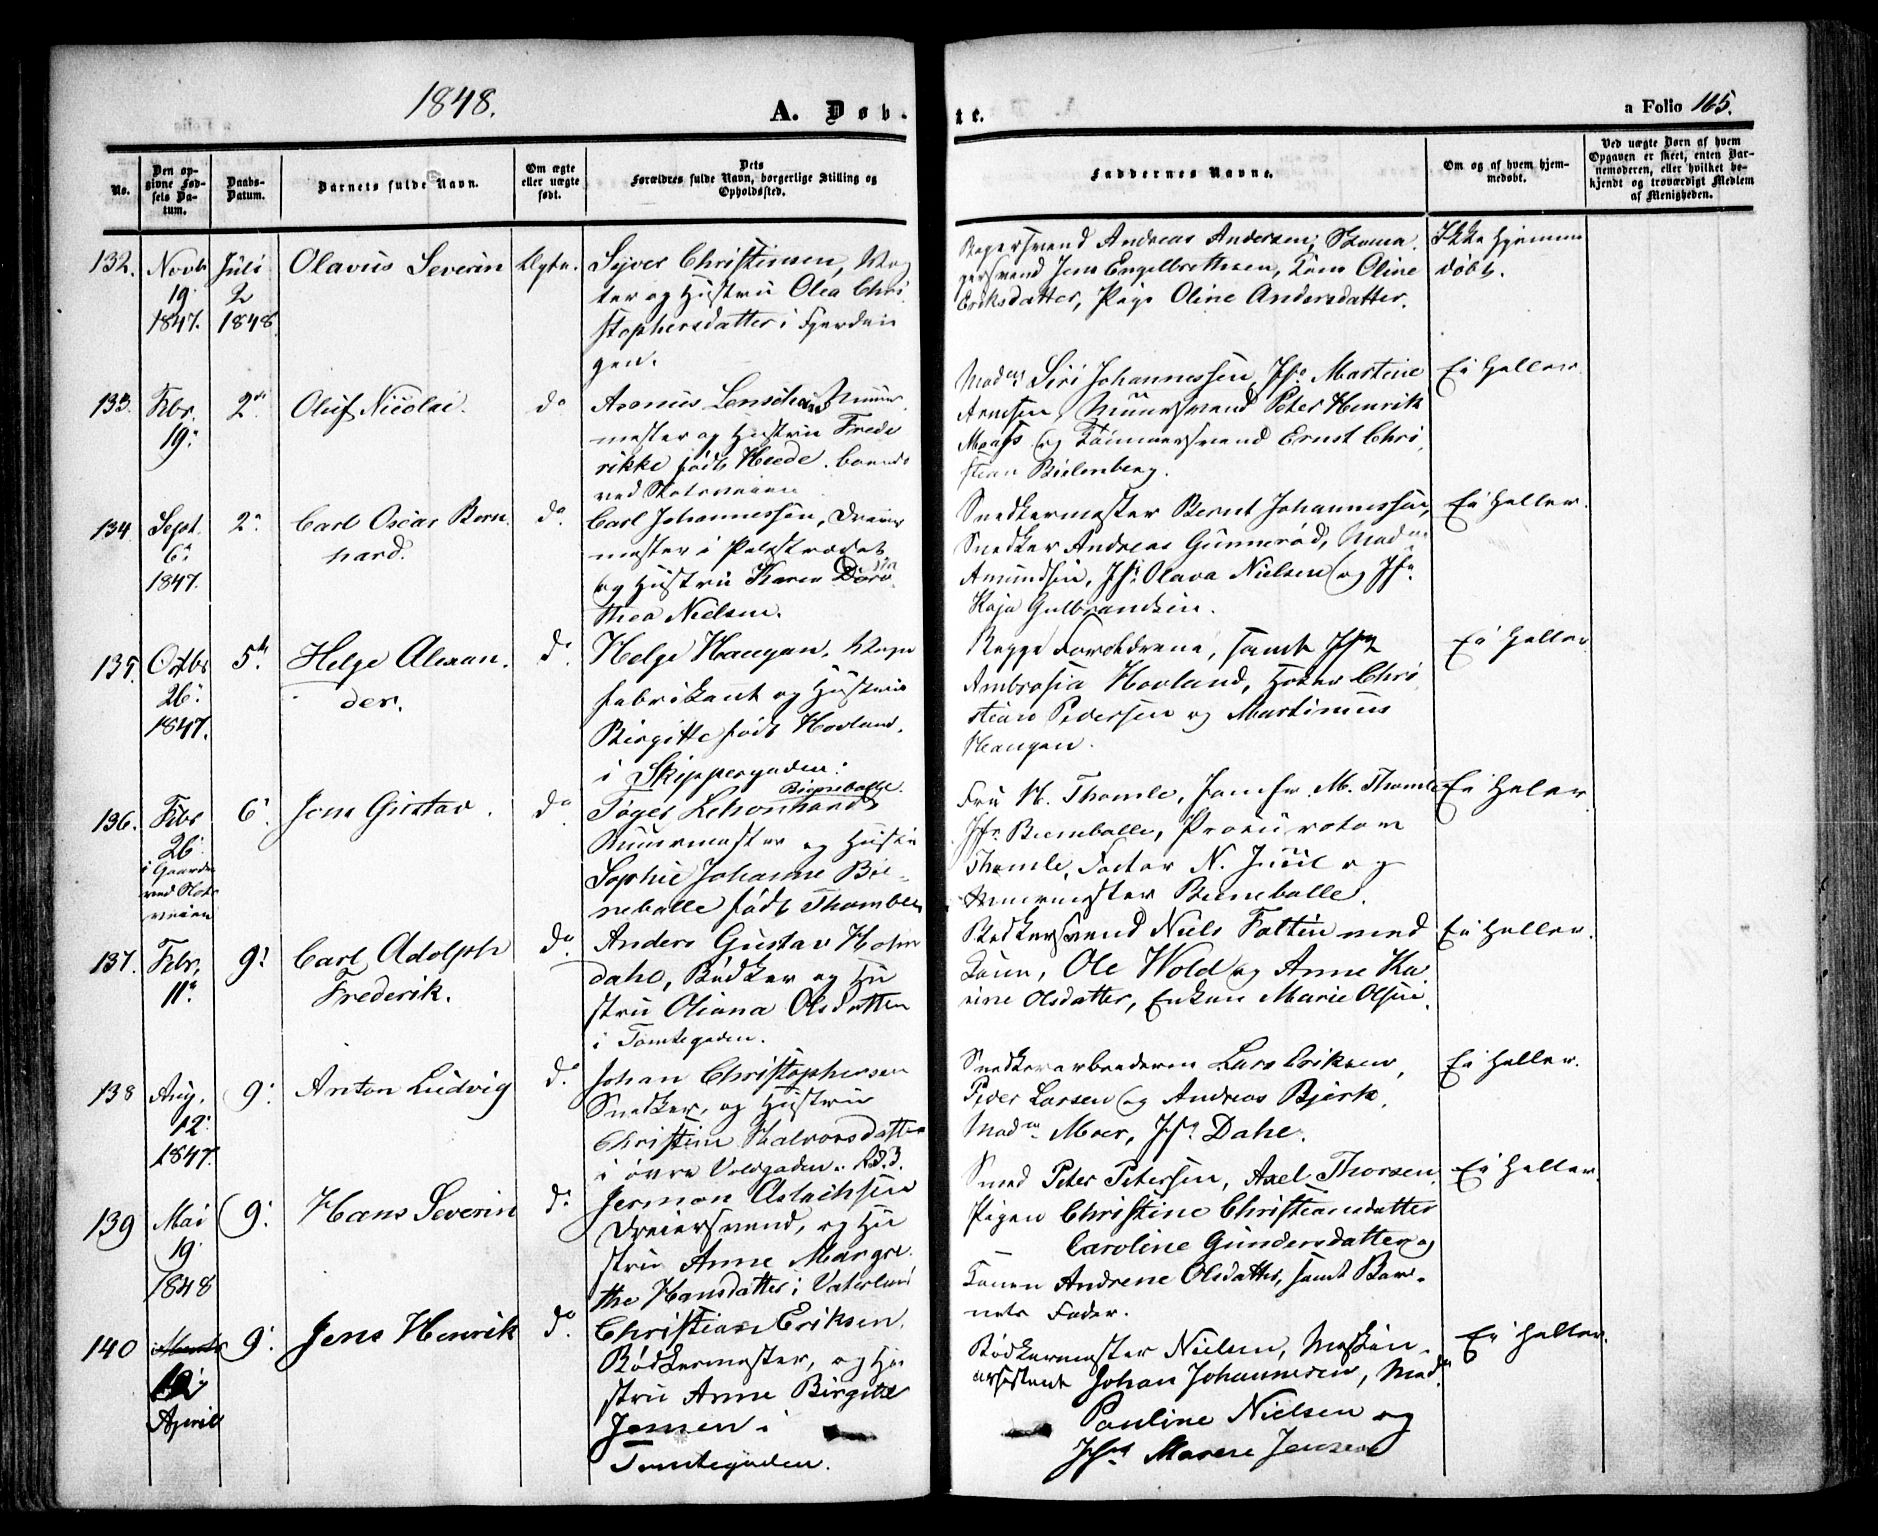 1848.
A. Døb-
te.
a Folio 165.
No.
Den op-
givne Fød-
sels Da-
tum.
Daabs-
Datum.
Barnets fulde Navn.
Om ægte
eller uægte
født.
Dets
Forældres fulde Navn, borgerlige Stilling og
Opholdssted.
Faddernes Navne.
Om og af hvem hjem-
medøbt.
Ved uægte Børn af hvem
Opgaven er skeet, enten Bar-
nemoderen, eller hvilket be-
kjendt og troværdigt Medlem
af Menigheden.
132. Novb 19. 1847.
Juli 2 1848
Olavus Severin
Ægte.
Sejver Christinsen,
og Hustru Olea Chri
stophersdatter i Fjerdin
gen.
Bagersvend Andreas Andersen,
Jens Engelbrethsen, Kone Oline
Eriksdatter, Pige Oline Andersdatter.
Ikke hjemme
døbt.
133. Febr. 19.
2.
Oluf Nicolai.
do
Muur
mester og Hustru Frede
rikke født Heede. boende
ved Slotsveien
Madm Siri Johannessen, Jfr Martine
Arnesen, Muursvend Peter Henrik
og Tømmersvend Ernst Chri
stian Bielenberg.
Ei heller.
134 Sept. 6. 1847.
2.
Carl Oscar Bern
hard.
do.
Carl Johannessen, Dreier
mester i Pilestrædet
og Hustru Karen Doro
thea Nielsen.
Snedkermester Bernt Johannessen,
Snedker Andreas Gunnerød, Madm
Amundsen, Jfr Olava Nielsen og Jfr
Kaja Gulbrandsen.
Ei heller.
135. Octbr 26. 1847.
5.
Helge Alexan-
der.
do
Helge Haugan, Vogn
fabrikant og Hustru
Birgitte født Hovland,
i Skippergaden.
Begge Forældrene, samt Jfr
Ambrosia Hovland, Chri
stian Pedersen og Martinius
Haugan.
Ei heller
136. Febr 26.
i Gaarden
ved Slots
veien
6.
Jens Gustav.
do
Bieneballe.
Muurmester og Hustru
Sophie Johanne Bie-
neballe født Thomle
Fru N. Thomle, Jomfr M. Thomle
Jfr Bieneballe, Procurator
Thomle, Factor N. Juul og
Muurmester Bieneballe.
Ei Heller
137. Febr. 11.
9.
Carl Adolph
Frederik.
do.
Anders Gustav Holm
dahl, Bødker og Hu
stru Oliana Olsdatter
i Tomtegaden.
Bødkersvend Niels Fottin med
Kone, Ole Wold og Anne Ka
rine Olsdatter, Enken Marie Olsen.
Ei heller.
138 Aug. 12. 1847.
9.
Anton Ludvig
do.
Johan Christophersen
Snedker, og Hustru
Christine Halvorsdatter
i øvre Voldgaden.
Snedkerarbeideren Lars Eriksen,
Peder Larsen og Andreas Bjerk,
Madm Moer, Jfr Dahl.
Ei heller.
139 Mai 19. 1848
9.
Hans Severin
do.
Jermon Aslachsen
Dreiersvend, og Hu
stru Anne Margre
the Hansdatter i Vaterland
Smed Peter Petersen, Axel Thorsen,
Pigen Christine Christiansdatter
Caroline Gundersdatter og
Konen Andrene Olsdatter, samt Bar-
nets Fader.
Ei heller.
140
April
9.
Jens Henrik
do.
Christian Eriksen,
Bødkermester, og Hu
stru Anne Birgitte
Jensen i
Tomtegaden.
Bødkermester Nielsen, Maskin
assistent Johan Johannesen, Madm
Pauline Nielsen og
Jfr Maren Jensen
Ei heller.